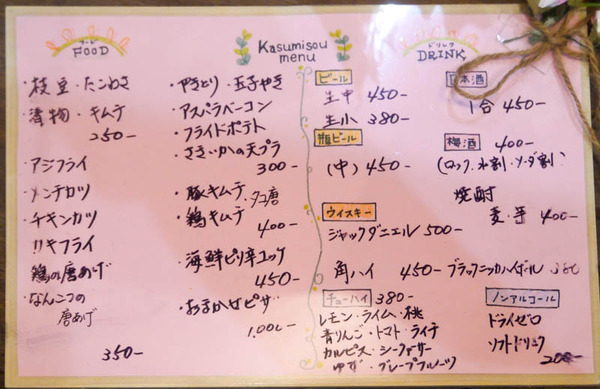 フード
FOOD
・枝豆・たこわさ
・漬物・キムチ
250-
・アジフライ
・メンチカツ
・チキンカツ
・カキフライ
・鶏の唐あげ
・なんこつの
唐あげ
350-
・やきとり・玉子やき
・アスパラベーコン
・フライドポテト
・さきいかの天プラ
300-
・豚キムチ・タコ唐
・鶏キムチ
400-
・海鮮ピリ辛ユッケ
450-
・おまかせピザ
1,000-
Kasumisou
menu
ドリンク
DRINK
ビール
生中 450-
生小 380-
瓶ビール
(中) 450-
ウイスキー
ジャックダニエル 500-
角ハイ 450- ブラックニッカハイボール 380
チューハイ 380-
レモン・ライム・桃
青りんご・トマト・ライチ
カルピス・シークァーサー
ゆず・グレープフルーツ
日本酒
1合 450-
梅酒 400-
(ロック、水割、ソーダ割)
焼酎
麦・芋 400-
ノンアルコール
ドライゼロ
ソフトドリンク
200-